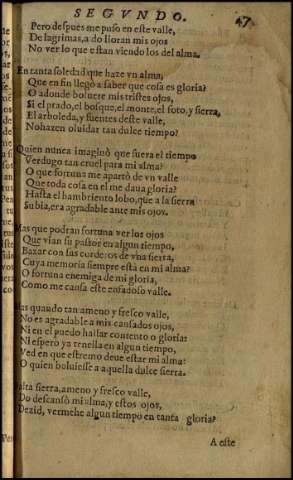 SEGVNDO. 47
Pero despues me puso en este valle,
De lagrimas, a do lloran mis ojos
No ver lo que estan viendo los del alma.
En tanta soledad que haze vn alma,
Que en fin llegò a saber que cosa es gloria?
O adonde boluere mis tristes ojos,
Si el prado, el bosque, el monte, el soto, y sierra,
El arboleda, y fuentes deste valle,
No hazen oluidar tan dulce tiempo?
Quien nunca imaginò que fuera el tiempo
Verdugo tan cruel para mi alma?
O que fortuna me apartò de vn valle
Que toda cosa en el me daua gloria?
Hasta el hambriento lobo, que a la sierra
Subia, era agradable ante mis ojos.
Mas que podran fortuna ver los ojos
Que vian su pastor en algun tiempo,
Baxar con sus corderos de vna sierra,
Cuya memoria siempre està en mi alma?
O fortuna enemiga de mi gloria,
Como me cansa este enfadoso valle.
Mas quando tan ameno y fresco valle,
No es agradable a mis cansados ojos,
Ni en el puedo hallar contento o gloria:
Ni espero ya tenella en algun tiempo,
Ved en que estremo deue estar mi alma:
O quien boluiesse a aquella dulce sierra.
O alta sierra, ameno y fresco valle,
Do descansò mi alma, y estos ojos,
Dezid, vermehe algun tiempo en tanta gloria?
A este